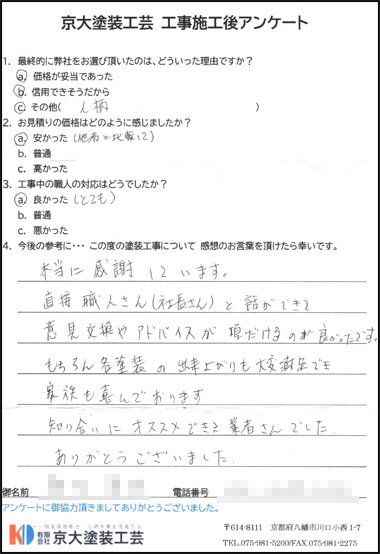 京大塗装工芸 工事施工後アンケート
1．最終的に弊社をお選び頂いたのは、どういった理由ですか？
a. 価格が妥当であった
b. 信用できそうだから
c. その他( 人柄 )
2．お見積りの価格はどのように感じましたか？
a. 安かった (他者と比較して)
b. 普通
c. 高かった
3．工事中の職人の対応はどうでしたか？
a. 良かった (とても)
b. 普通
c. 悪かった
4．今後の参考に･･･ この度の塗装工事について 感想のお言葉を頂けたら幸いです。
本当に感謝しています。
直接職人さん(社長さん)と話ができて
意見交換やアドバイスが頂だけるのが良かったです。
もちろん各塗装の出来上がりも大変満足でき
家族も喜んでおります
知り合いにオススメできる業者さんでした。
ありがとうございました。
御名前 電話番号
アンケートに御協力頂きましてありがとうございました。
KD 有限会社 京大塗装工芸
〒614-8111 京都府八幡市川口小西 1-7
TEL.075-981-5200/FAX.075-981-2275